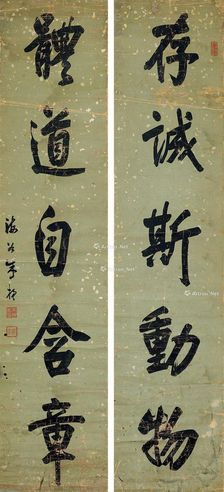 存誠斯動物
體道自含章